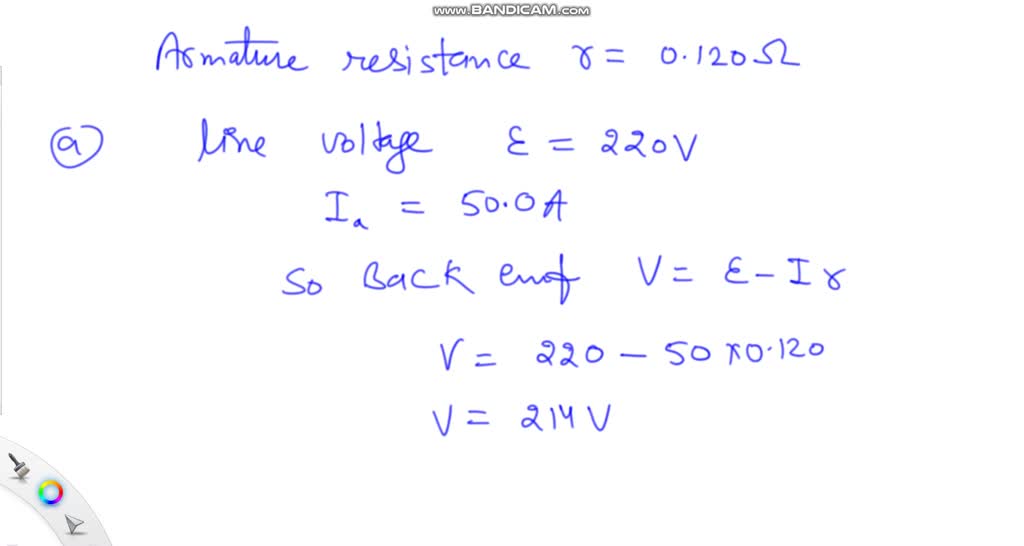 www.BANDICAM.com
Armature resistance r = 0.120Ω
(a) line voltage ε = 220V
Ia = 50.0A
So Back emf V = ε - I r
V = 220 - 50 x 0.120
V = 214 V